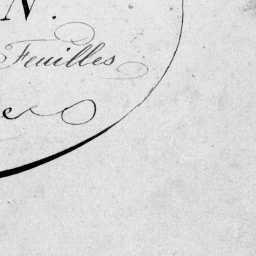 N.
Feuilles
e